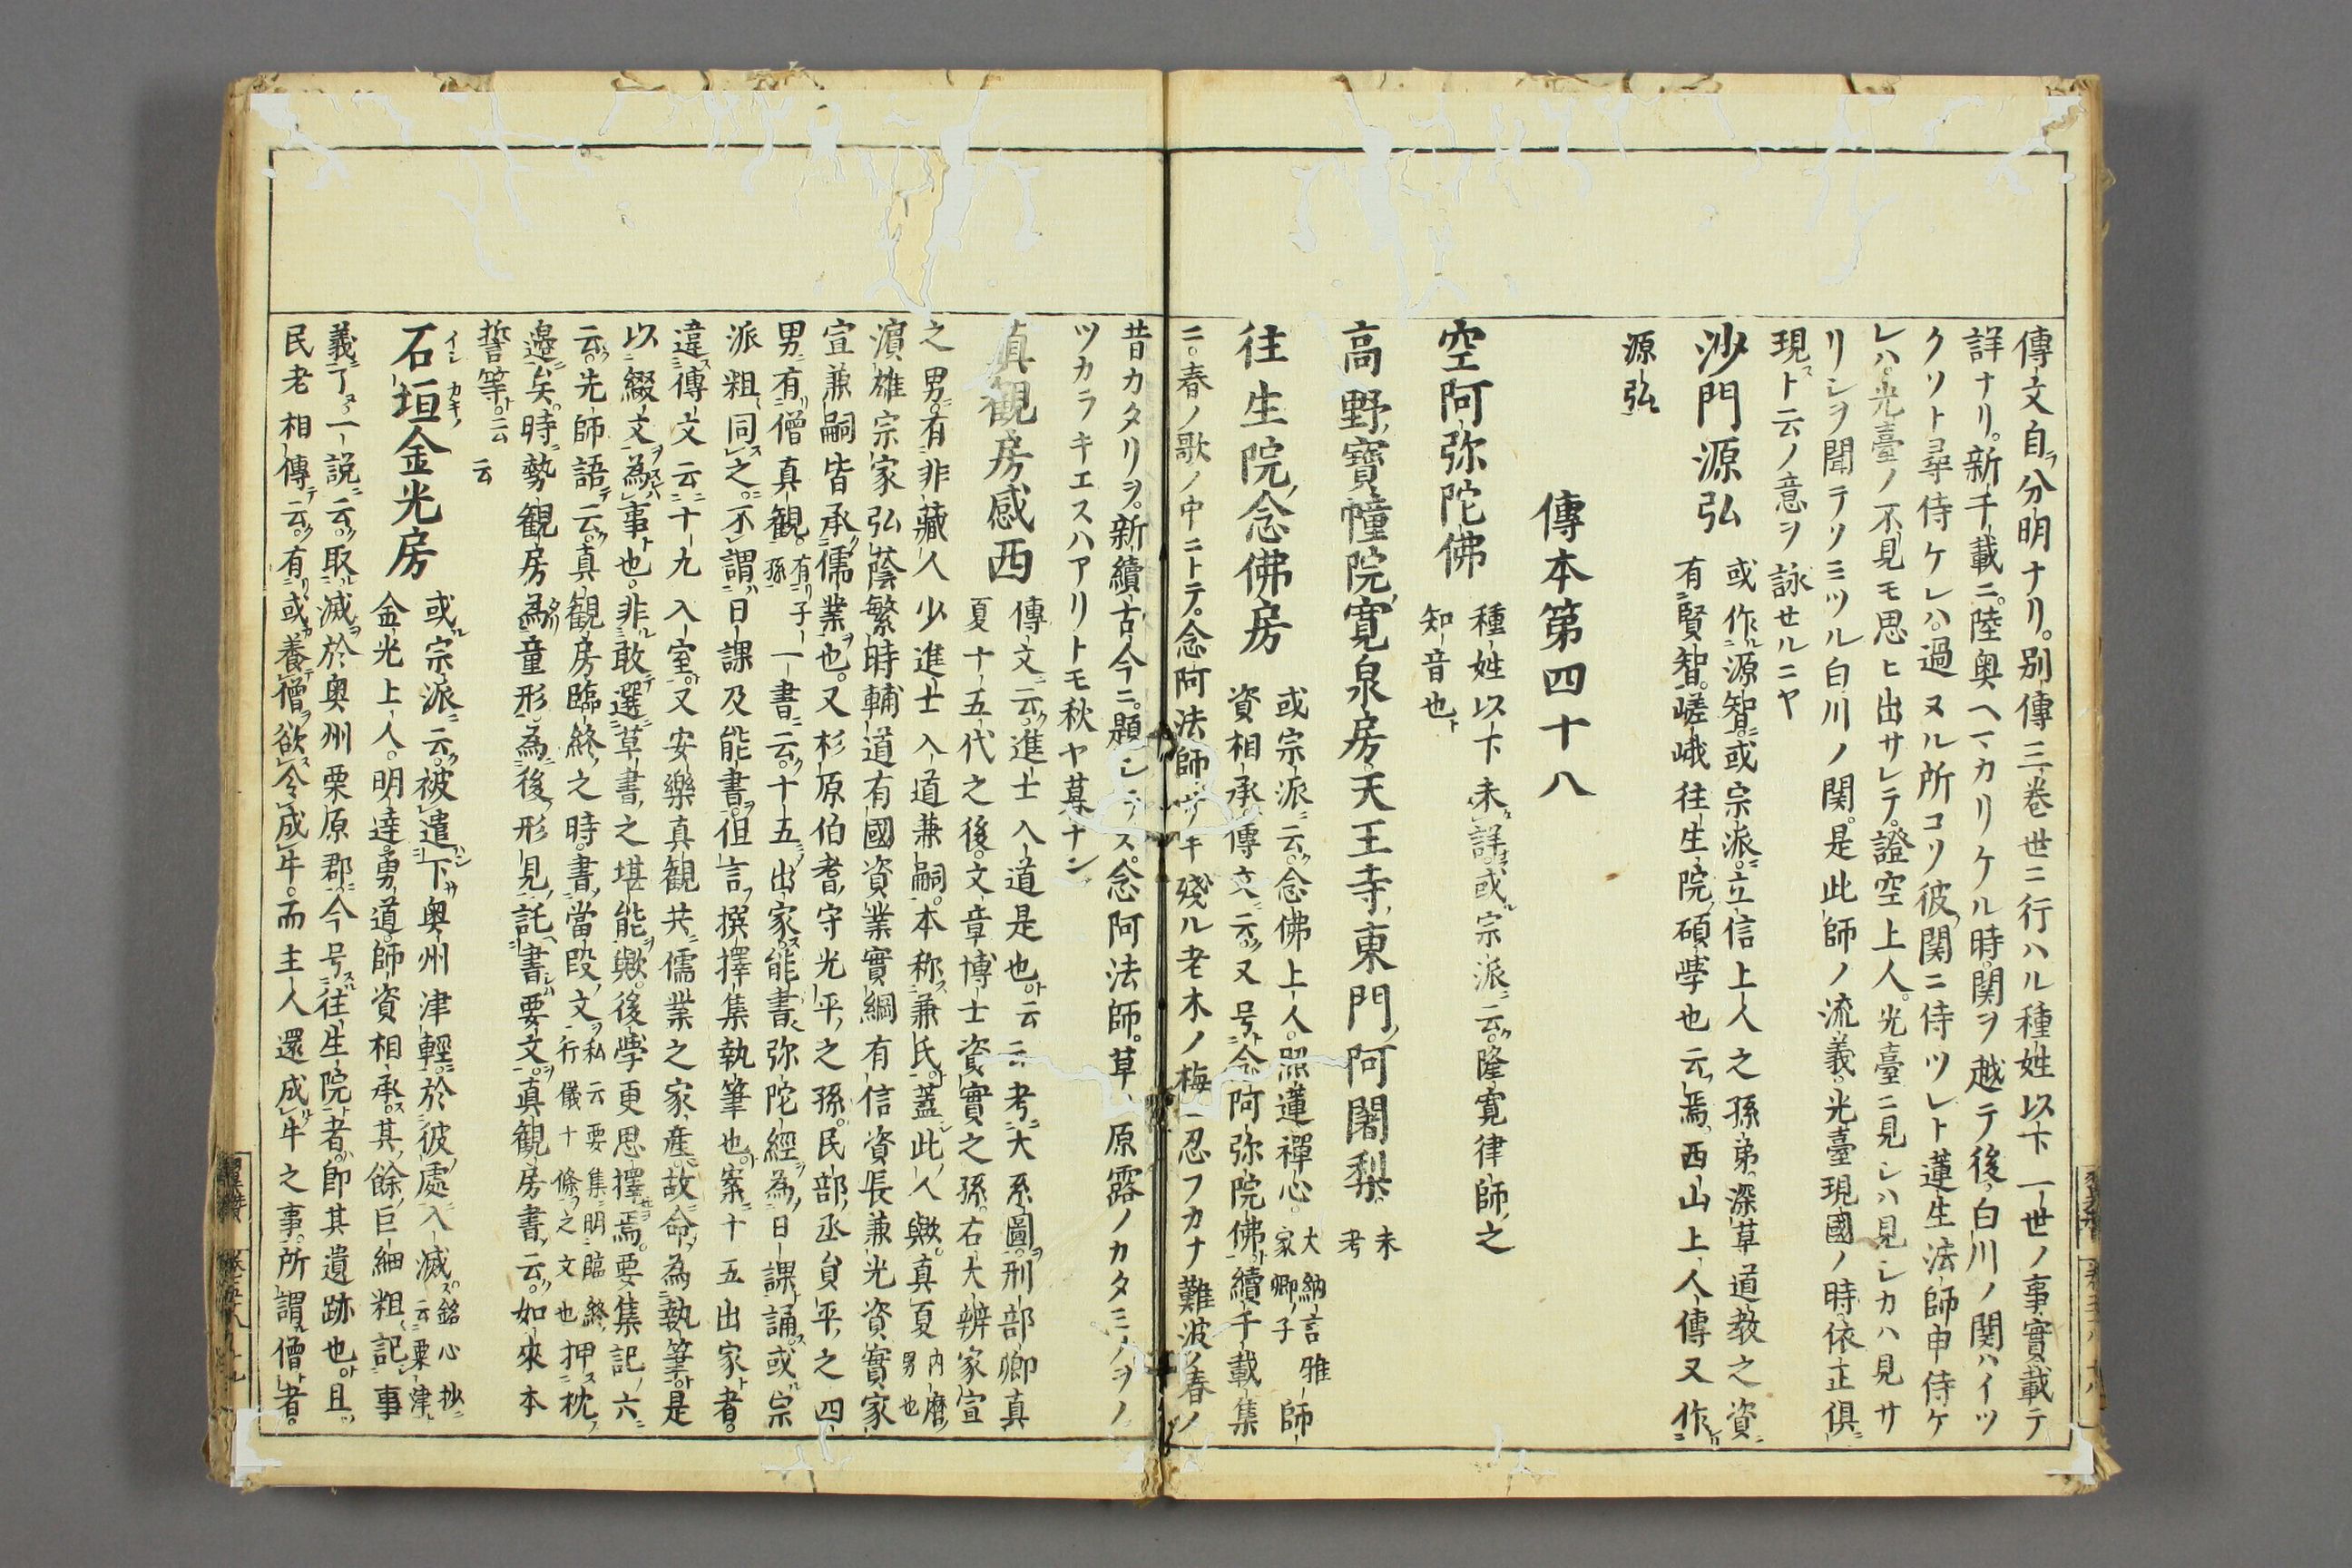 傳文自ヲ分明ナリ。別傳三巻世ニ行ハル種姓以下一世ノ事實載テ
詳ナリ。新千載ニ。陸奥ヘマカリケル時。関ヲ越テ後。白川ノ関ハイツ
クソト尋侍ケレハ。過ヌル所コリ彼関ニ侍ツレト蓮生法師申侍ケ
レハ。光臺ノ不見モ思ヒ出サレテ。證空上人。光臺ニ見シハ見シカハ見サ
リシヲ聞テソミツル白川ノ関。是此師ノ流義。光臺現國ノ時。依正俱ニ
現スト云ノ意ヲ詠セルニヤ
沙門源弘
或作ル源智ニ。或宗派ニ。立信上人之孫弟。深草道教之資ニ
有賢智。嵯峨往生院碩學也云焉。西山上人傳又作ル
源弘
傳本第四十八
空阿弥陀佛
種姓以下未詳。或宗派ニ云。隆寛律師之
知音也ト
高野寶幢院寛泉房。天王寺東門阿闍梨。
未考
往生院念佛房
或宗派ニ云。念佛上人。照蓮禪心。
大納言雅
家卿ノ子
師
資相承傳文ニ云。又号念阿弥院佛ト。續千載集
ニ。春ノ歌ノ中ニトテ。念阿法師。サキ殘ル老木ノ梅ニ忍フカナ難波ノ春ノ
昔カタリヲ。新續古今ニ。題シラス。念阿法師。草ノ原露ノカタミノヲノ
ツカラキエスハアリトモ秋ヤ暮ナン
真觀房感西
傳文ニ云。進士入道是也ト云云考ニ大系圖。刑部卿真
夏十五代之後。文章博士資實之孫。右大辨家宣
之男。有非藏人少進士入道兼嗣。本称兼氏。蓋此人歟。真夏
内麿
男也
濵雄宗家弘蔭繁時輔道有國資業實綱有信資長兼光資實家
宣兼嗣皆承儒業也。又杉原伯耆守光平之孫。民部丞負平之四
男有僧真觀。
有子一
孫
書ニ云。十五出家。能書。弥陀經為日課誦。或宗
派粗同之。不謂日課及能書。但言撰擇集執筆也。案ニ十五出家ト者。
違傳文云十九入室。又安樂真觀共ニ儒業之家產。故命為執筆。是
以綴文為事也。非敢選草書之堪能歟。後學更思擇焉。要集記六ニ
云。先師語テ云。真觀房臨終之時。書當段文ヲ
私云要集明臨終
行儀十條之文也
押枕
邊矣。時勢觀房為童形。為後形見託書要文。真觀房書云。如來本
誓等ト云云
石垣金光房
イシカキノ
或宗派ニ云。被遣下奥州津輕。於彼處入滅ス。
銘心抄ニ
云栗津
金光上人。明達勇道。師資相承。其餘巨細粗記事
義了ヌ。一說ニ云。取滅於奥州栗原郡。今号往生院者。即其遺跡也ト。且
民老相傳テ云。有或養僧欲令成牛。而主人還成牛之事。所謂僧ト者。